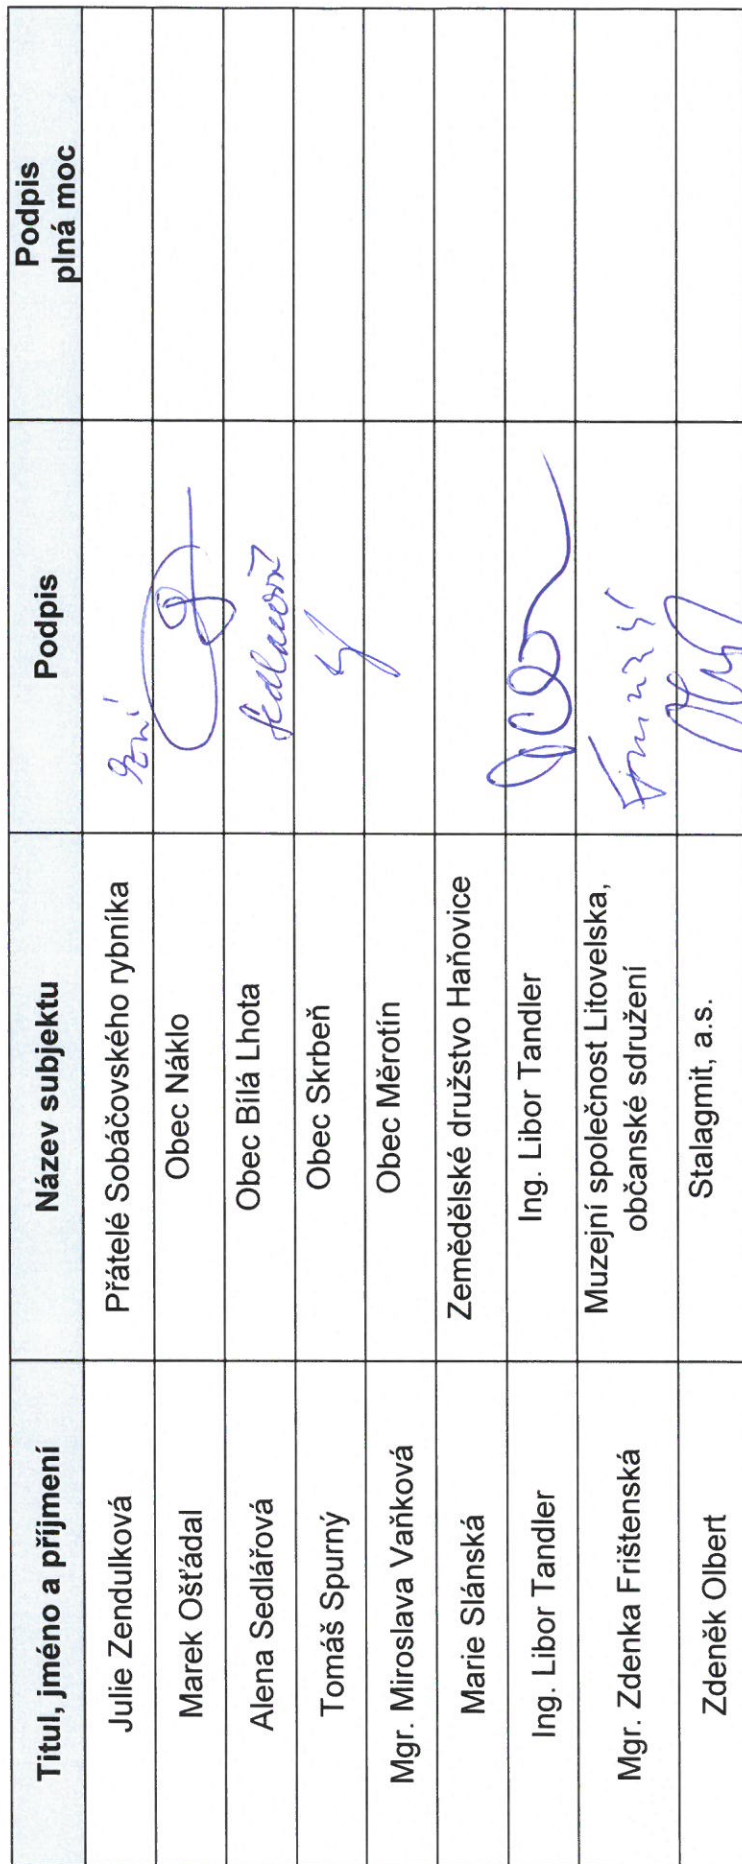 Titul, jméno a příjmení Název subjektu Podpis Podpis
plná moc
Julie Zendulková Přátelé Sobáčovského rybníka
Marek Ošťádal Obec Náklo
Alena Sedlářová Obec Bílá Lhota Sedlářová
Tomáš Spurný Obec Skrbeň
Mgr. Miroslava Vaňková Obec Měrotín
Marie Slánská Zemědělské družstvo Haňovice
Ing. Libor Tandler Ing. Libor Tandler
Mgr. Zdenka Frištenská Muzejní společnost Litovelska,
občanské sdružení
Zdeněk Olbert Stalagmit, a.s.